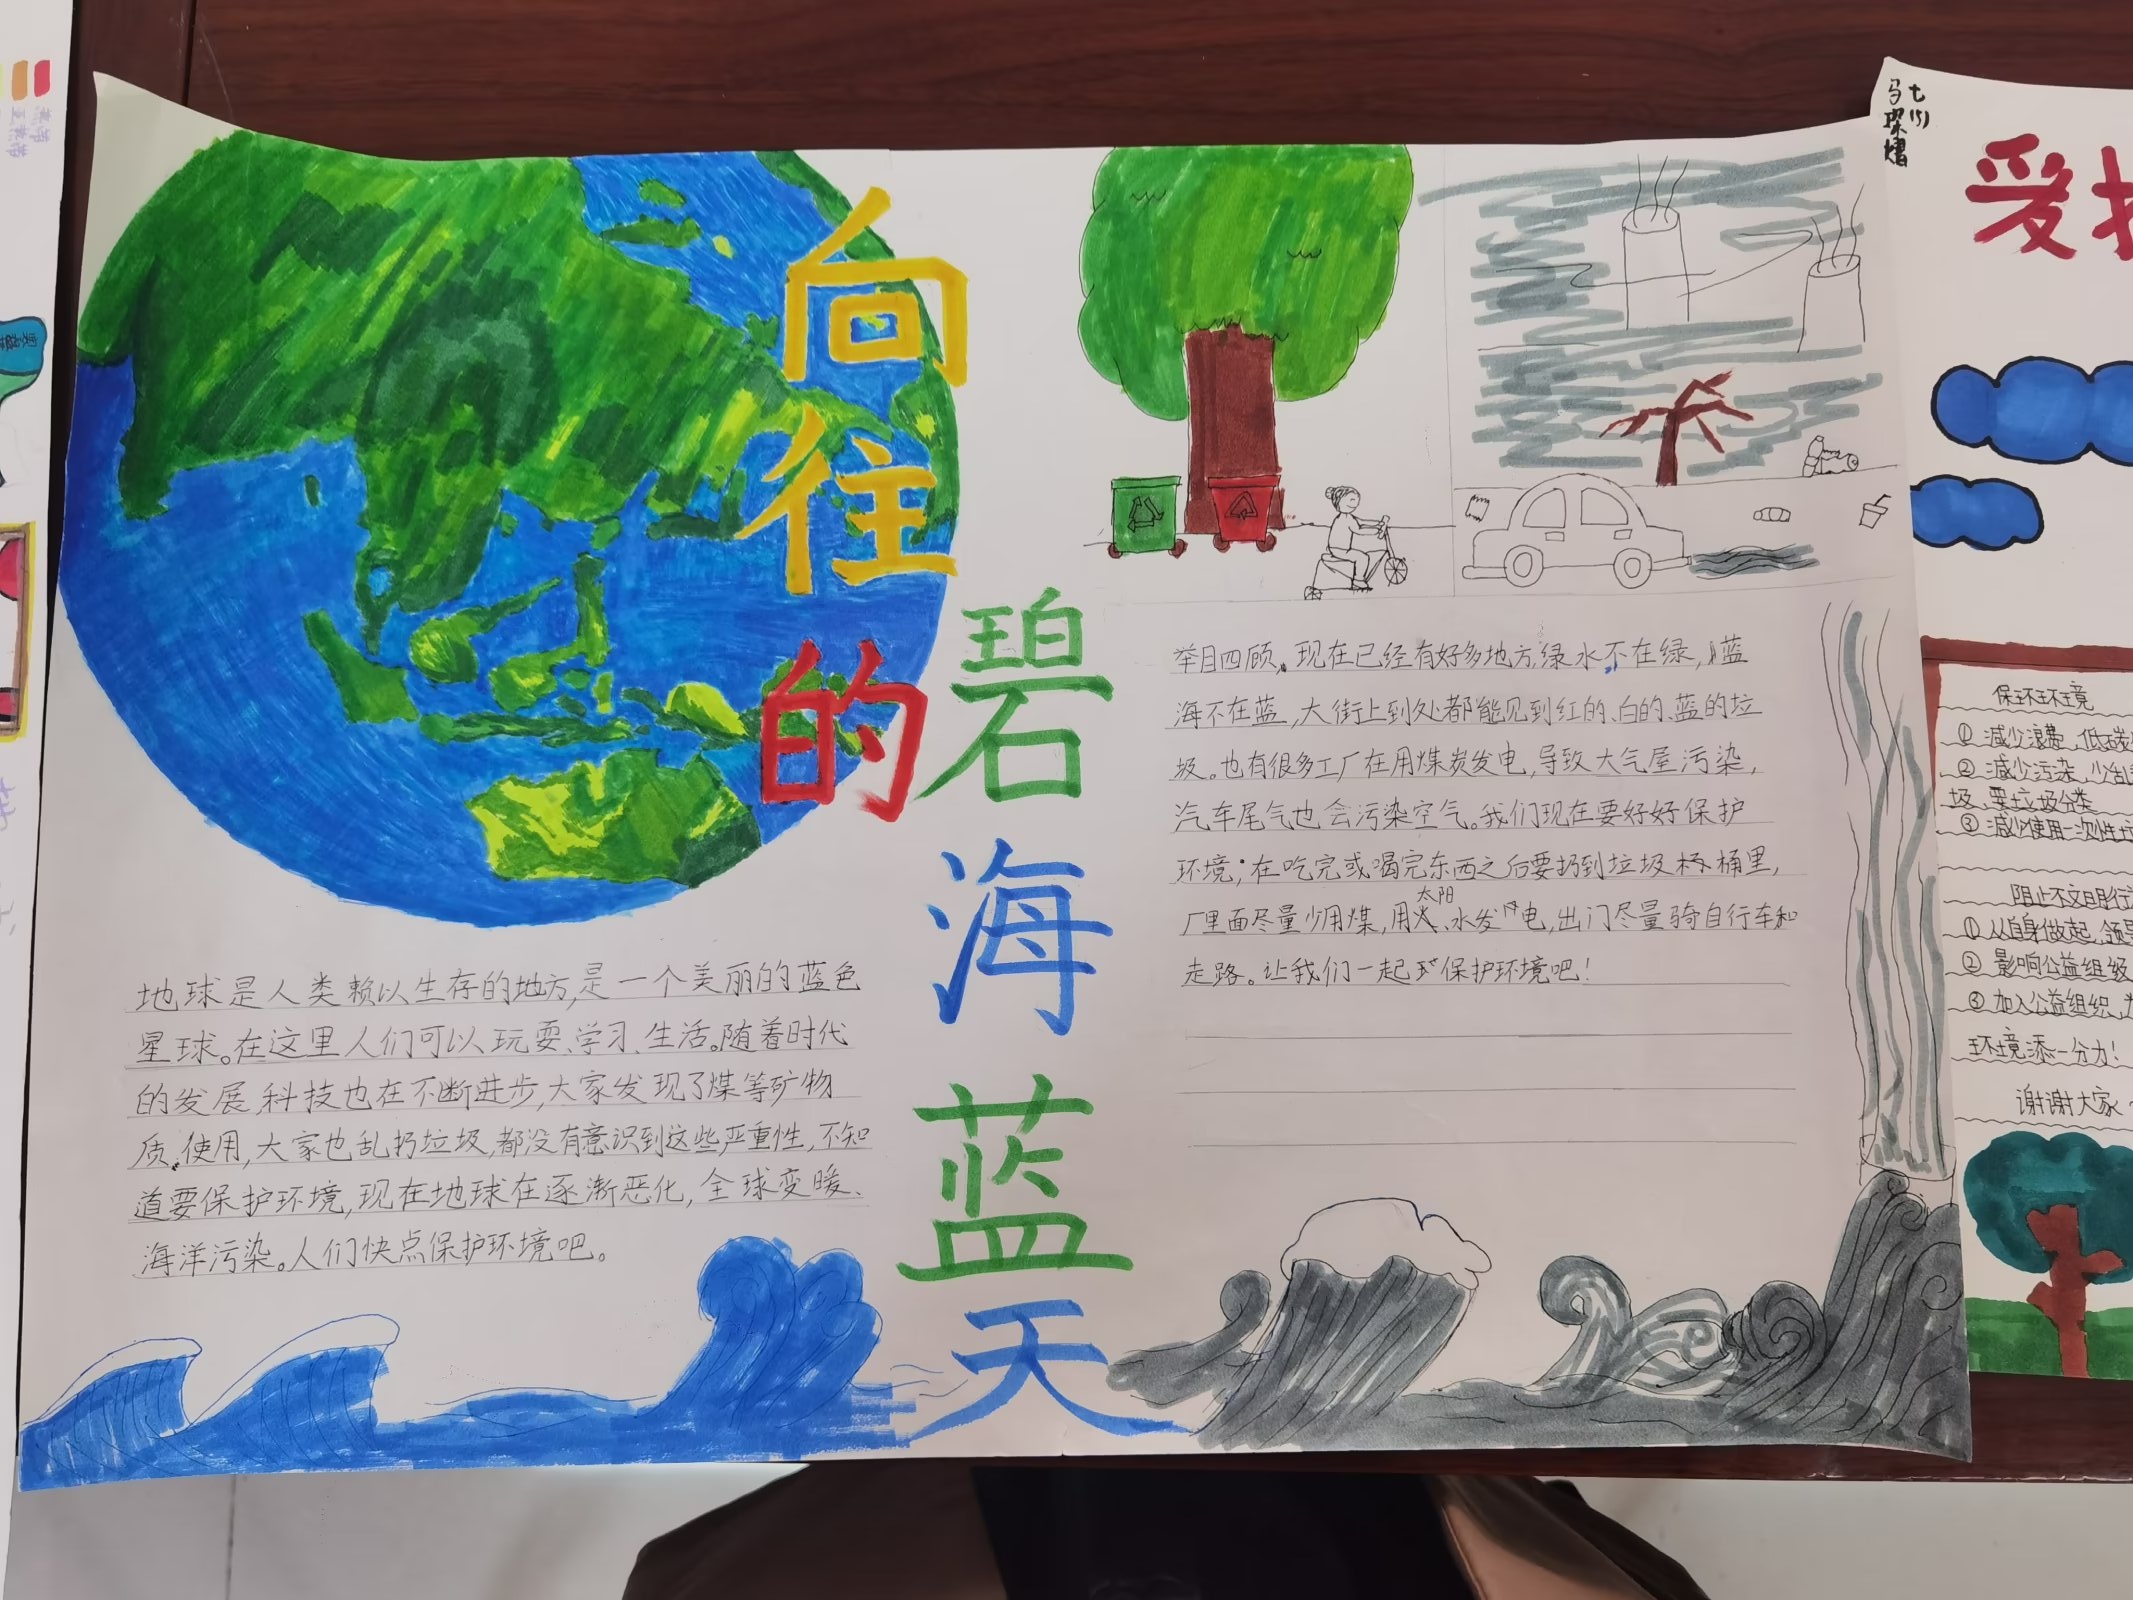 向往的
碧海蓝天
地球是人类赖以生存的地方,是一个美丽的蓝色
星球。在这里人们可以玩耍、学习、生活。随着时代
的发展,科技也在不断进步,大家发现了煤等矿物
质,使用,大家也乱扔垃圾,都没有意识到这些严重性,不知
道要保护环境,现在地球在逐渐恶化,全球变暖、
海洋污染。人们快点保护环境吧。
举目四顾,现在已经有好多地方绿水不在绿,蓝
海不在蓝,大街上到处都能见到红的、白的、蓝的垃
圾。也有很多工厂在用煤炭发电,导致大气层污染,
汽车尾气也会污染空气。我们现在要好好保护
环境;在吃完或喝完东西之后要扔到垃圾桶里,
厂里面尽量少用煤,用太阳、水发电,出门尽量骑自行车和
走路。让我们一起保护环境吧!
七
马琛熠
爱护
保环环境
①减少浪费,低碳
②减少污染,少乱
圾,要垃圾分类
③减少使用一次性
阻止不文明行
①从自身做起,领
②影响公益组
③加入公益组织,
环境添一分力!
谢谢大家